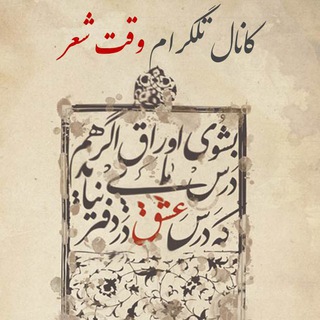 کانال تلگرام وقت شعر
بشوی اوراق اگر هم
درس مایی
که درس عشق در دفتر نباید